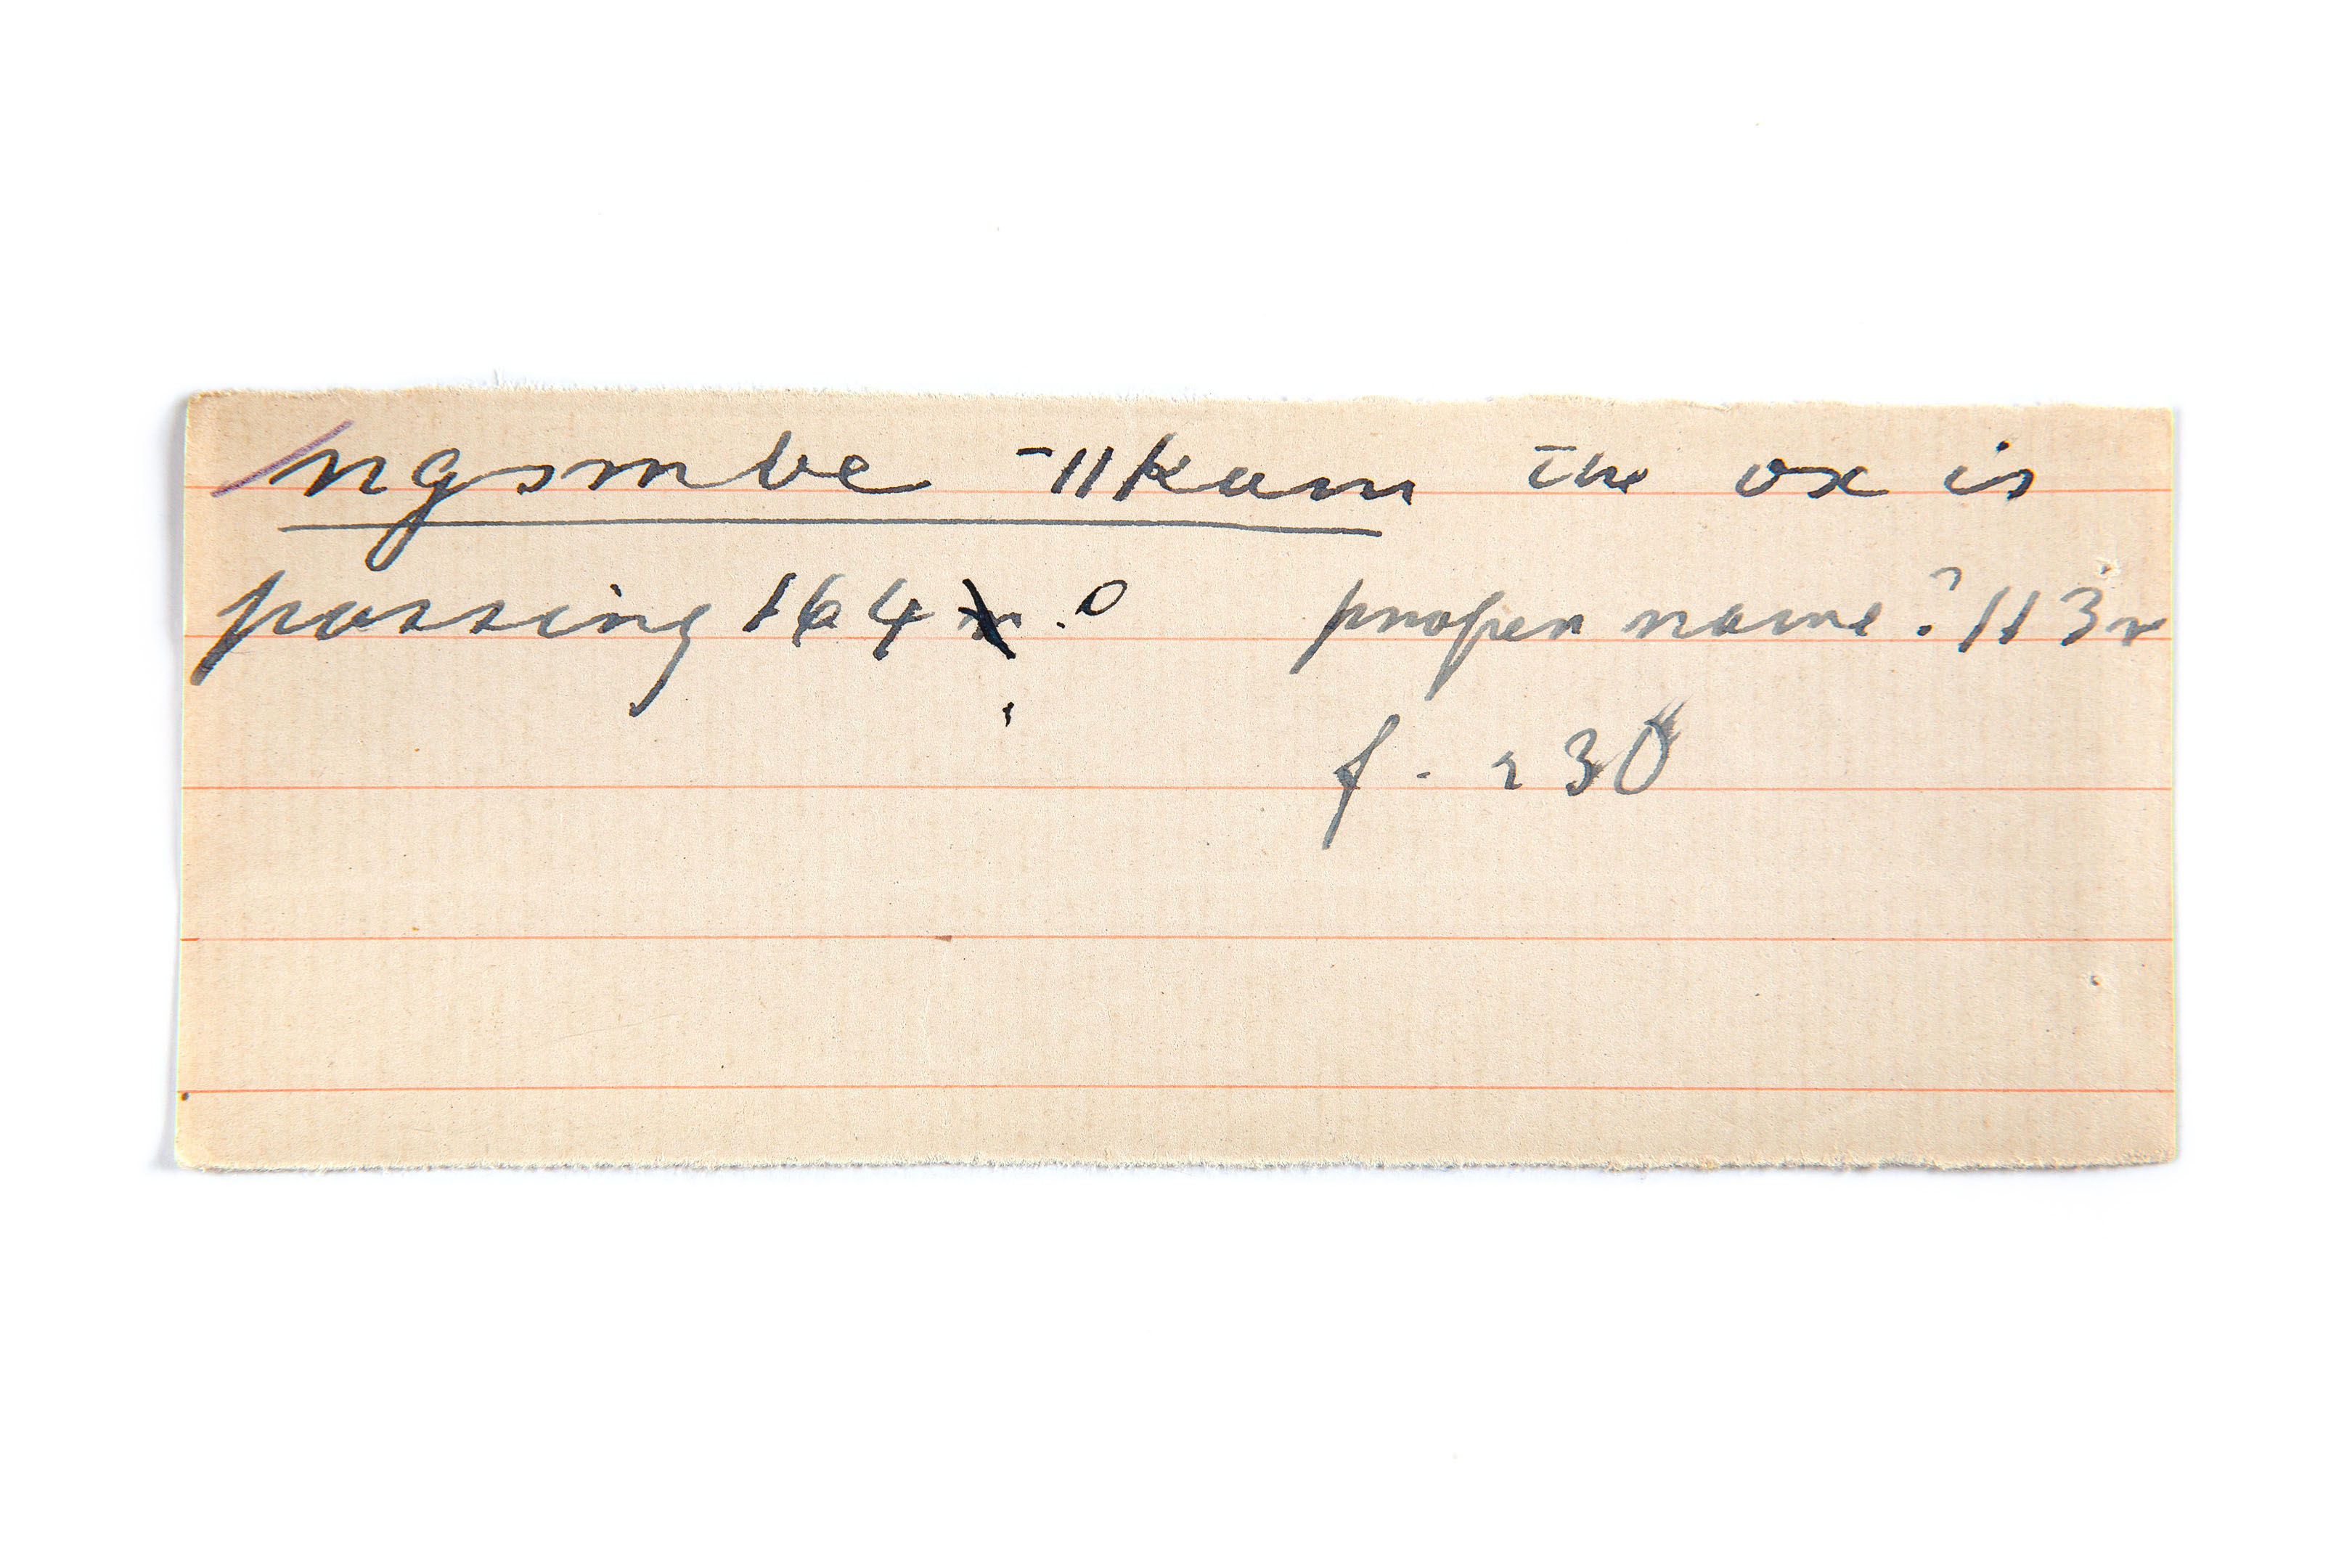 ngombe -||kam the ox is
passing 164 r. o proper name? 113r
f. 230